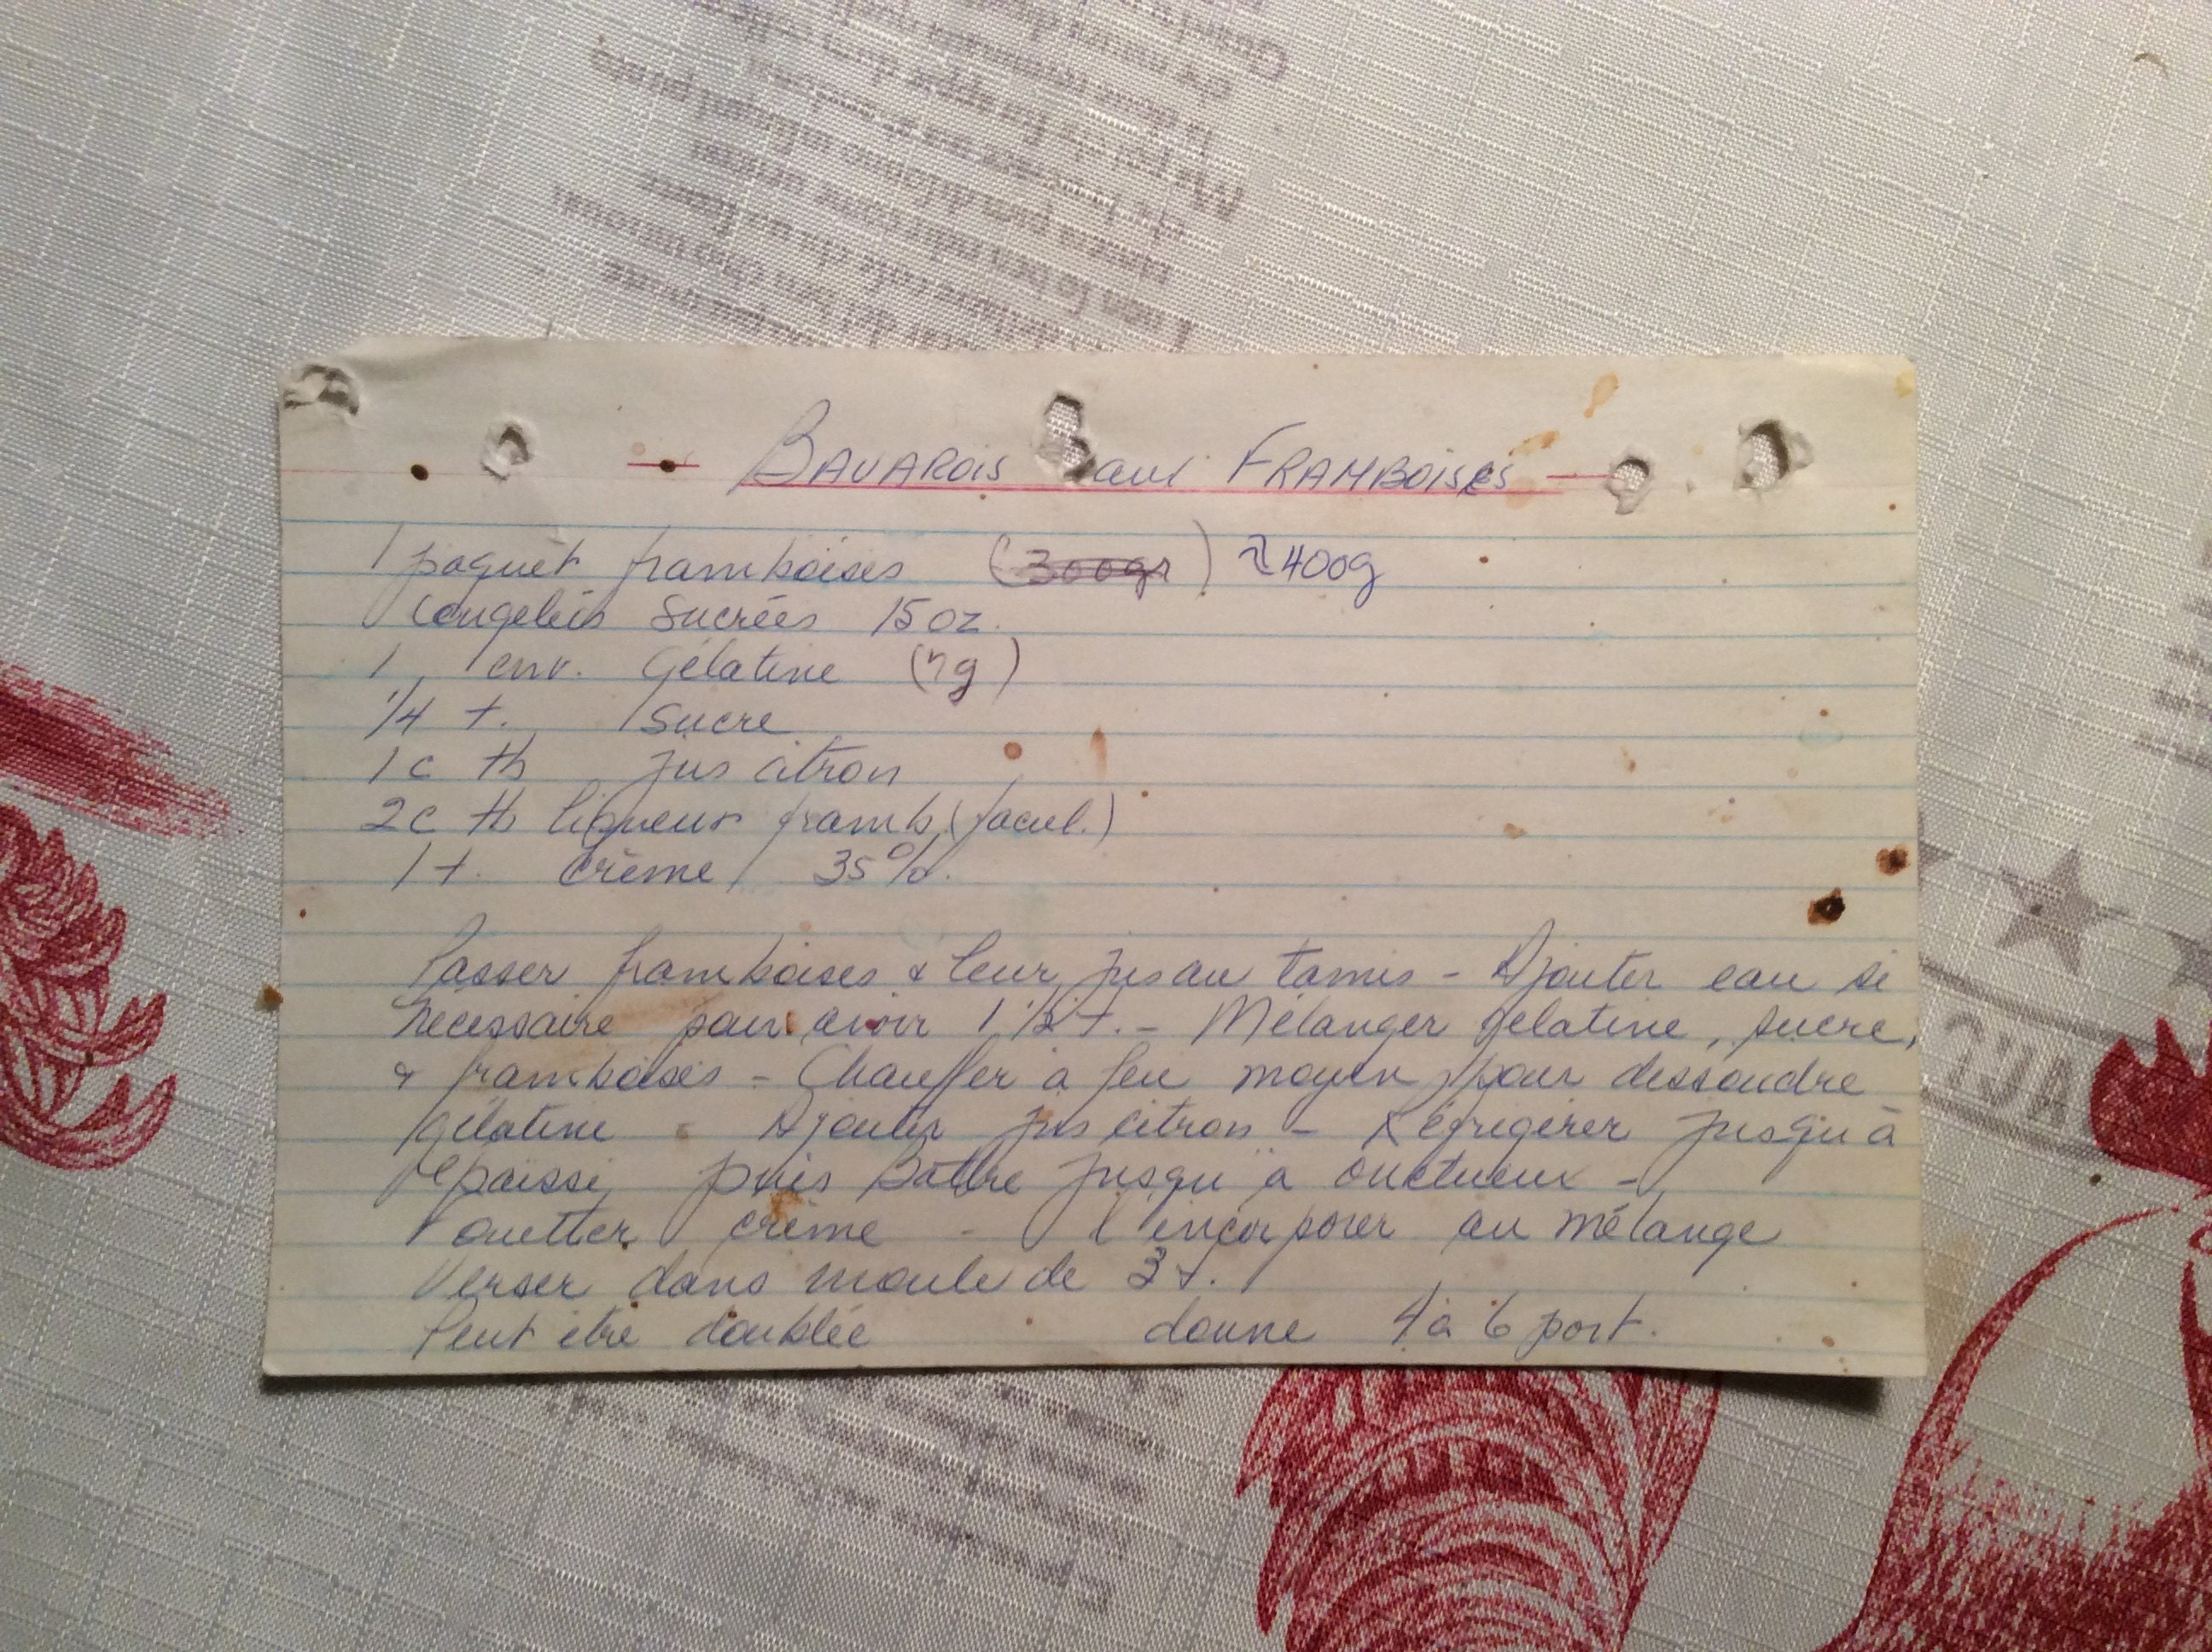 BAVAROIS aux FRAMBOISES
1 paquet framboises (300gr) ≈400g
congelées sucrées 15 oz.
1 env. Gélatine (7g)
1/4 t. Sucre
1 c th jus citron
2 c th liqueur framb. (facul.)
1 t. Crème 35%.
Passer framboises & leur jus au tamis - Ajouter eau si
nécessaire pour avoir 1 1/2 t. - Mélanger gélatine, sucre,
& framboises - Chauffer à feu moyen pour dissoudre
gélatine - Ajouter jus citron - Réfrigérer jusqu'à
épaissi, puis Battre jusqu'à onctueux -
Fouetter crème - l'incorporer au mélange
Verser dans moule de 3 t.
Peut être doublée donne 4 à 6 port.